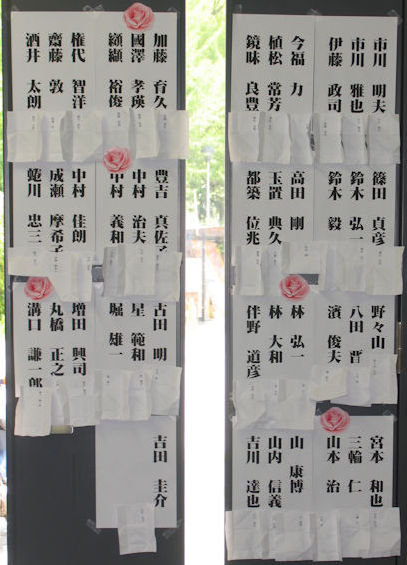 市川 明夫
市川 雅也
伊藤 政司
今福 力
植松 常芳
鏡味 良豊
篠田 貞彦
鈴木 弘一
鈴木 毅
高田 剛
玉置 典久
都築 位兆
野々山
八田 晋
濱 俊夫
林 弘一
林 大和
伴野 道彦
宮本 和也
三輪 仁
山本 治
山 康博
山内 信義
吉川 達也
加藤 育久
國澤 孝瑛
纐纈 裕俊
権代 智洋
齋藤 敦
酒井 太朗
豊吉 真佐
中村 治夫
中村 義和
中村 佳朗
成瀬 摩希
蜷川 忠三
古田 明
星 範和
堀 雄一
増田 興司
丸橋 正之
溝口 謙一郎
吉田 圭介